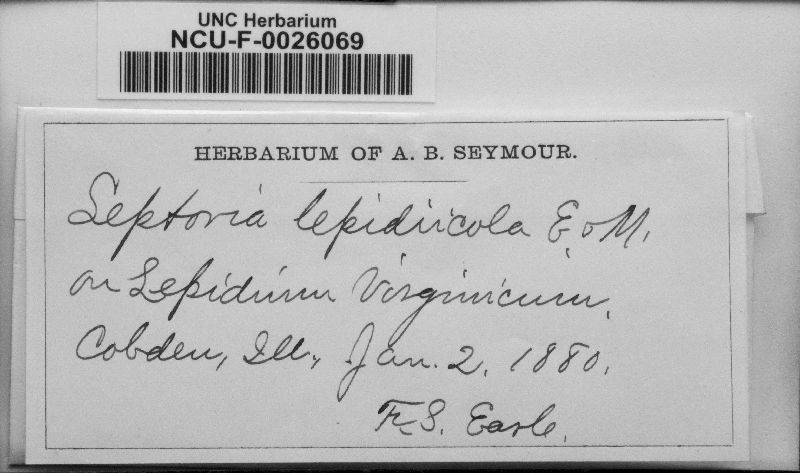 UNC Herbarium
NCU-F-0026069
HERBARIUM OF A. B. SEYMOUR.
Septoria lepidiicola E. & M.
on Lepidium Virginicum.
Cobden, Ill., Jan. 2, 1880.
F. S. Earle.